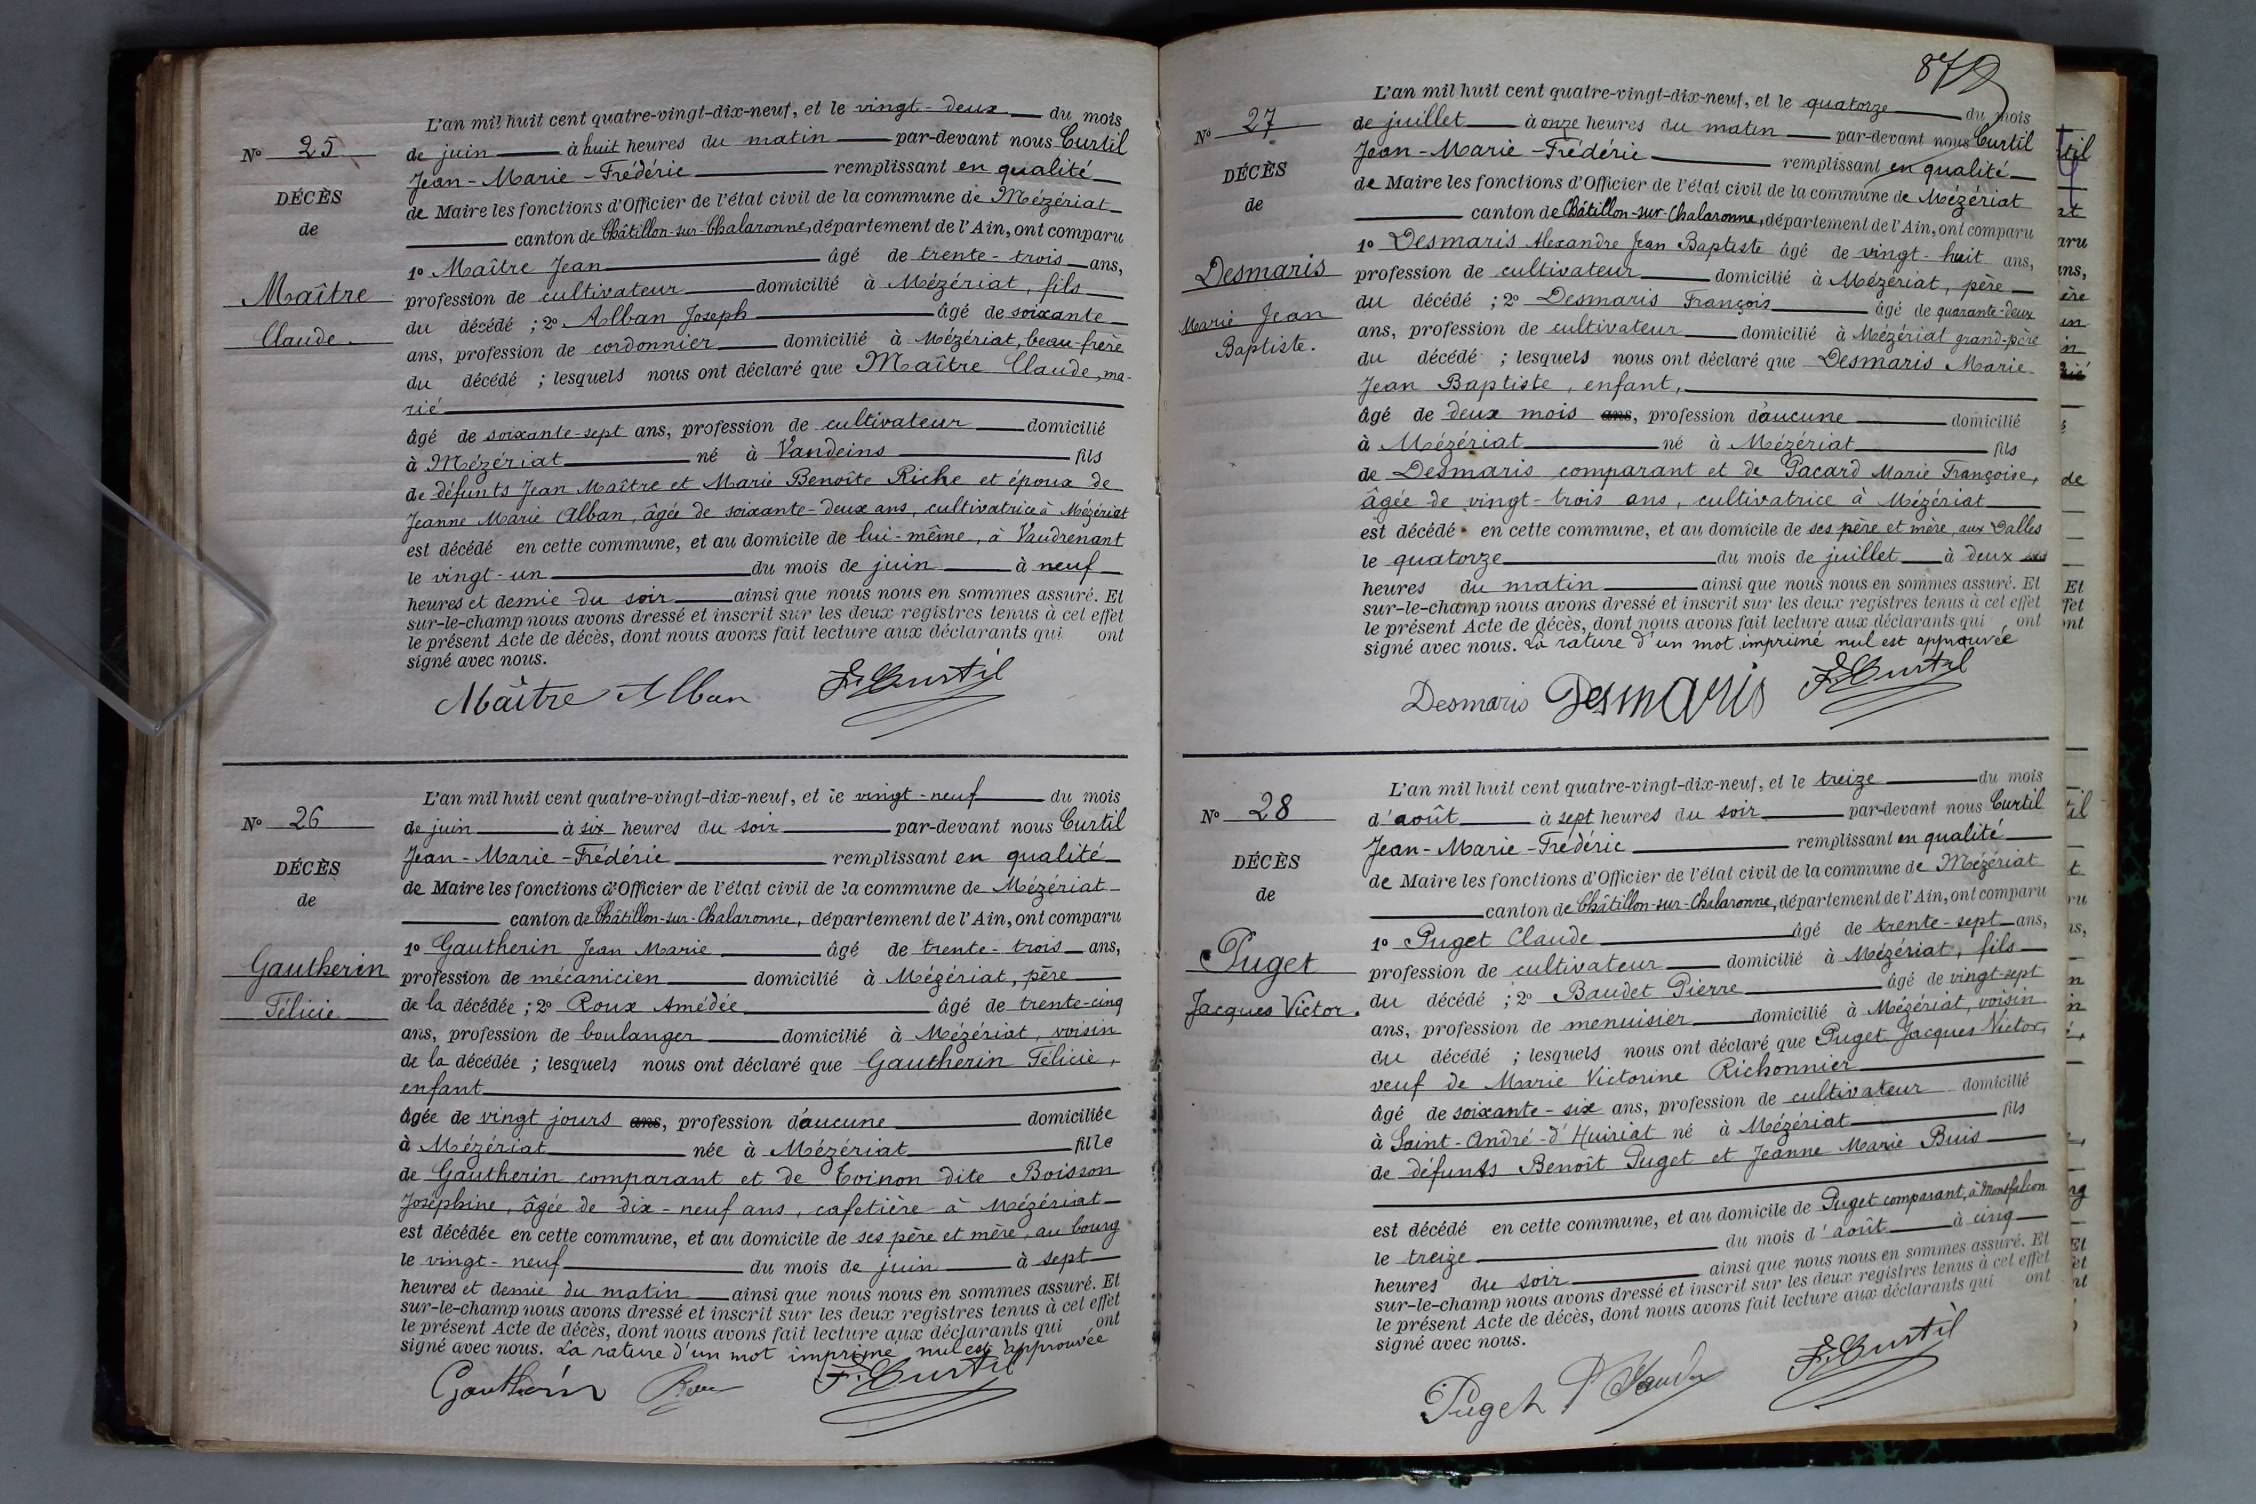 L'an mil huit cent quatre-vingt-dix-neuf, et le vingt-deux du mois
N° 25
de juin à huit heures du matin par-devant nous Curtil
Jean-Marie-Frédéric remplissant en qualité
DÉCÈS
de Maire les fonctions d'Officier de l'état civil de la commune de Mézériat
de
canton de Châtillon-sur-Chalaronne, département de l'Ain, ont comparu
1° Maître Jean âgé de trente-trois ans,
Maître
profession de cultivateur domicilié à Mézériat, fils
du décédé ; 2° Alban Joseph âgé de soixante
Claude.
ans, profession de cordonnier domicilié à Mézériat, beau-frère
du décédé ; lesquels nous ont déclaré que Maître Claude, ma-
rié
âgé de soixante-sept ans, profession de cultivateur domicilié
à Mézériat né à Vandeins fils
de défunts Jean Maître et Marie Benoîte Riche et époux de
Jeanne Marie Alban, âgée de soixante-deux ans, cultivatrice à Mézériat
est décédé en cette commune, et au domicile de lui-même, à Vaudrenant
le vingt-un du mois de juin à neuf
heures et demie du soir ainsi que nous nous en sommes assuré. Et
sur-le-champ nous avons dressé et inscrit sur les deux registres tenus à cet effet
le présent Acte de décès, dont nous avons fait lecture aux déclarants qui ont
signé avec nous.
Maître Alban F. Curtil
L'an mil huit cent quatre-vingt-dix-neuf, et le vingt-neuf du mois
N° 26
de juin à six heures du soir par-devant nous Curtil
Jean-Marie-Frédéric remplissant en qualité
DÉCÈS
de Maire les fonctions d'Officier de l'état civil de la commune de Mézériat
de
canton de Châtillon-sur-Chalaronne, département de l'Ain, ont comparu
1° Gautherin Jean Marie âgé de trente-trois ans,
Gautherin
profession de mécanicien domicilié à Mézériat, père
Félicie
de la décédée ; 2° Roux Amédée âgé de trente-cinq
ans, profession de boulanger domicilié à Mézériat, voisin
de la décédée ; lesquels nous ont déclaré que Gautherin Félicie,
enfant
âgée de vingt jours ans, profession d'aucune domiciliée
à Mézériat née à Mézériat fille
de Gautherin comparant et de Toinon dite Boisson
Joséphine, âgée de dix-neuf ans, cafetière à Mézériat
est décédée en cette commune, et au domicile de ses père et mère, au bourg
le vingt-neuf du mois de juin à sept
heures et demie du matin ainsi que nous nous en sommes assuré. Et
sur-le-champ nous avons dressé et inscrit sur les deux registres tenus à cet effet
le présent Acte de décès, dont nous avons fait lecture aux déclarants qui ont
signé avec nous. La rature d'un mot imprimé nul est approuvée
Gautherin Roux F. Curtil
L'an mil huit cent quatre-vingt-dix-neuf, et le quatorze du mois
N° 27
de juillet à onze heures du matin par-devant nous Curtil
Jean-Marie-Frédéric remplissant en qualité
DÉCÈS
de Maire les fonctions d'Officier de l'état civil de la commune de Mézériat
de
canton de Châtillon-sur-Chalaronne, département de l'Ain, ont comparu
1° Desmaris Alexandre Jean Baptiste âgé de vingt-huit ans,
Desmaris
profession de cultivateur domicilié à Mézériat, père
du décédé ; 2° Desmaris François âgé de quarante-deux
Marie Jean
ans, profession de cultivateur domicilié à Mézériat grand-père
Baptiste.
du décédé ; lesquels nous ont déclaré que Desmaris Marie
Jean Baptiste, enfant,
âgé de deux mois ans, profession d'aucune domicilié
à Mézériat né à Mézériat fils
de Desmaris comparant et de Pacard Marie Françoise,
âgée de vingt-trois ans, cultivatrice à Mézériat
est décédé en cette commune, et au domicile de ses père et mère, aux Dalles
le quatorze du mois de juillet à deux
heures du matin ainsi que nous nous en sommes assuré. Et
sur-le-champ nous avons dressé et inscrit sur les deux registres tenus à cet effet
le présent Acte de décès, dont nous avons fait lecture aux déclarants qui ont
signé avec nous. La rature d'un mot imprimé nul est approuvée
Desmaris Desmaris F. Curtil
L'an mil huit cent quatre-vingt-dix-neuf, et le treize du mois
N° 28
d'août à sept heures du soir par-devant nous Curtil
Jean-Marie-Frédéric remplissant en qualité
DÉCÈS
de Maire les fonctions d'Officier de l'état civil de la commune de Mézériat
de
canton de Châtillon-sur-Chalaronne, département de l'Ain, ont comparu
1° Puget Claude âgé de trente-sept ans,
Puget
profession de cultivateur domicilié à Mézériat, fils
Jacques Victor.
du décédé ; 2° Baudet Pierre âgé de vingt-sept
ans, profession de menuisier domicilié à Mézériat, voisin
du décédé ; lesquels nous ont déclaré que Puget Jacques Victor,
veuf de Marie Victorine Richonnier
âgé de soixante-six ans, profession de cultivateur domicilié
à Saint-André-d'Huiriat né à Mézériat fils
de défunts Benoît Puget et Jeanne Marie Buis
est décédé en cette commune, et au domicile de Puget comparant, à Montfalcon
le treize du mois d'août à cinq
heures du soir ainsi que nous nous en sommes assuré. Et
sur-le-champ nous avons dressé et inscrit sur les deux registres tenus à cet effet
le présent Acte de décès, dont nous avons fait lecture aux déclarants qui ont
signé avec nous.
Puget F. Curtil